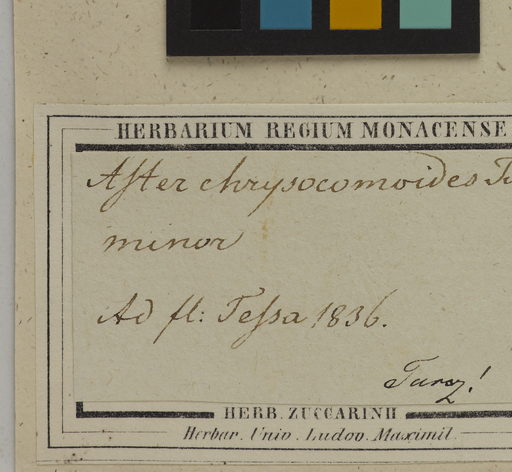 HERBARIUM REGIUM MONACENSE
Aster chrysocomoides
minor
Ad fl: Tessa 1836.
Turcz!
HERB. ZUCCARINII
Herbar. Univ. Ludov. Maximil.